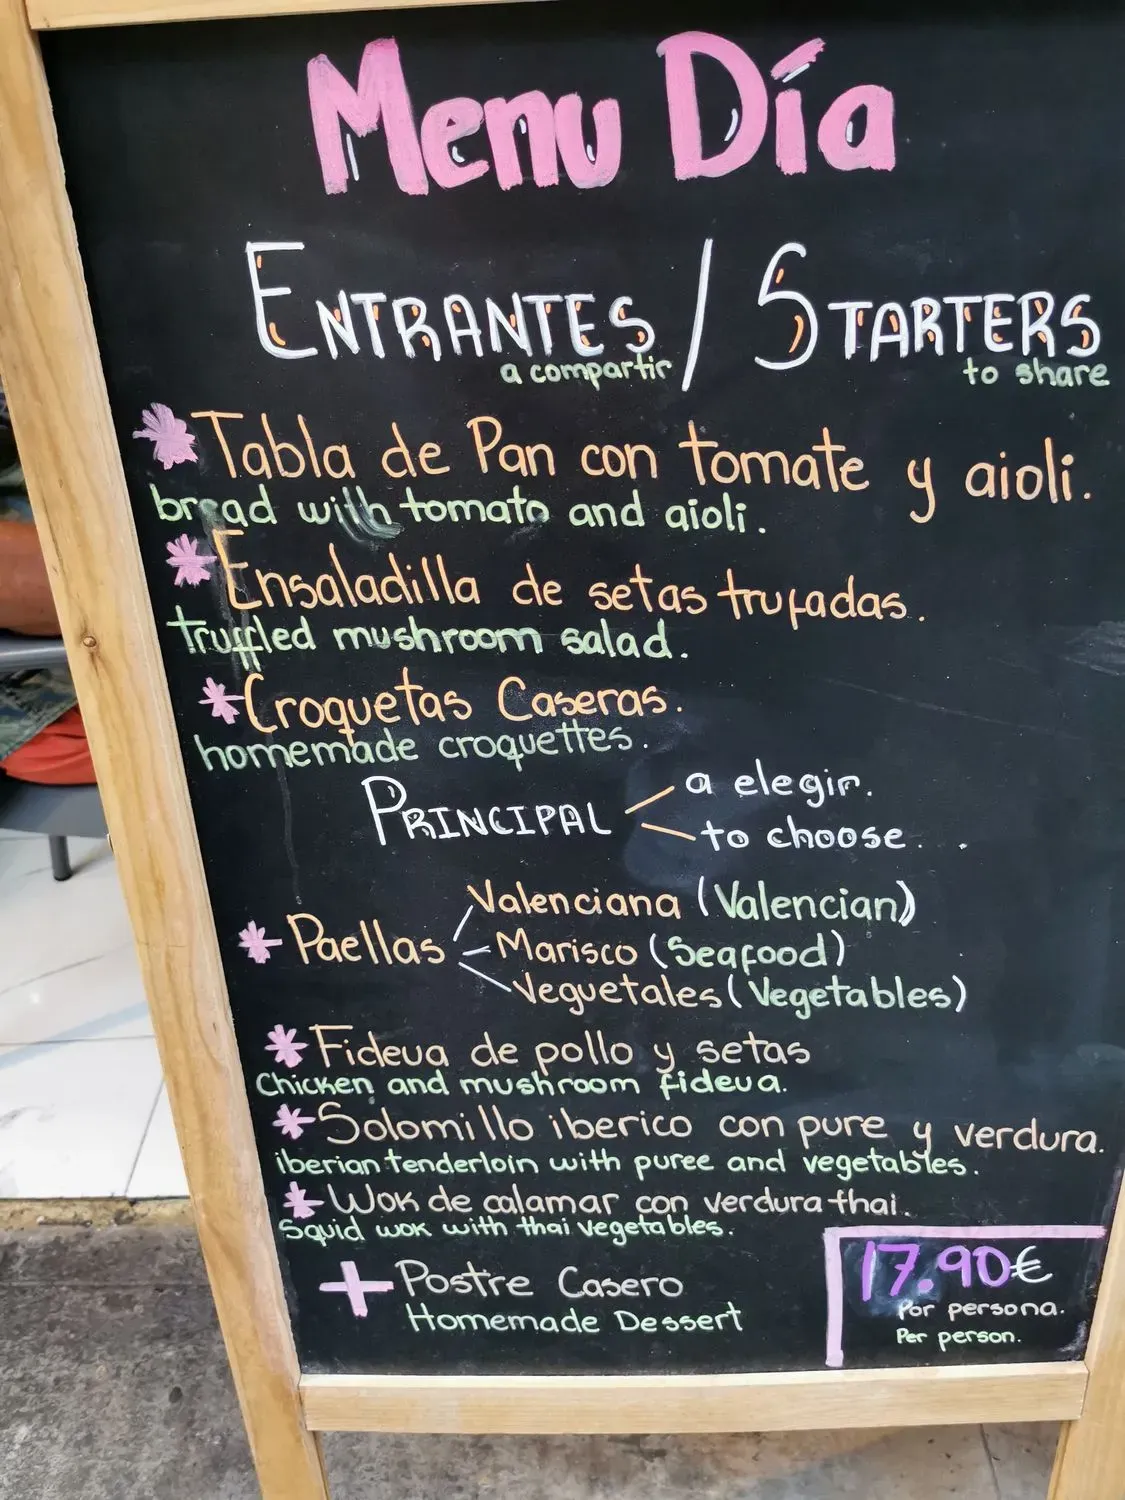 Menu Día
ENTRANTES / STARTERS
a compartir to share
*Tabla de Pan con tomate y aioli.
bread with tomato and aioli.
*Ensaladilla de setas trufadas.
truffled mushroom salad.
*Croquetas Caseras.
homemade croquettes.
PRINCIPAL a elegir.
to choose.
Valenciana (Valencian)
* Paellas Marisco (Seafood)
Veguetales (Vegetables)
*Fideua de pollo y setas
Chicken and mushroom fideua.
*Solomillo iberico con pure y verdura.
iberian tenderloin with puree and vegetables.
*Wok de calamar con verdura thai.
Squid wok with thai vegetables.
+ Postre Casero
Homemade Dessert
17.90€
Por persona.
Per person.